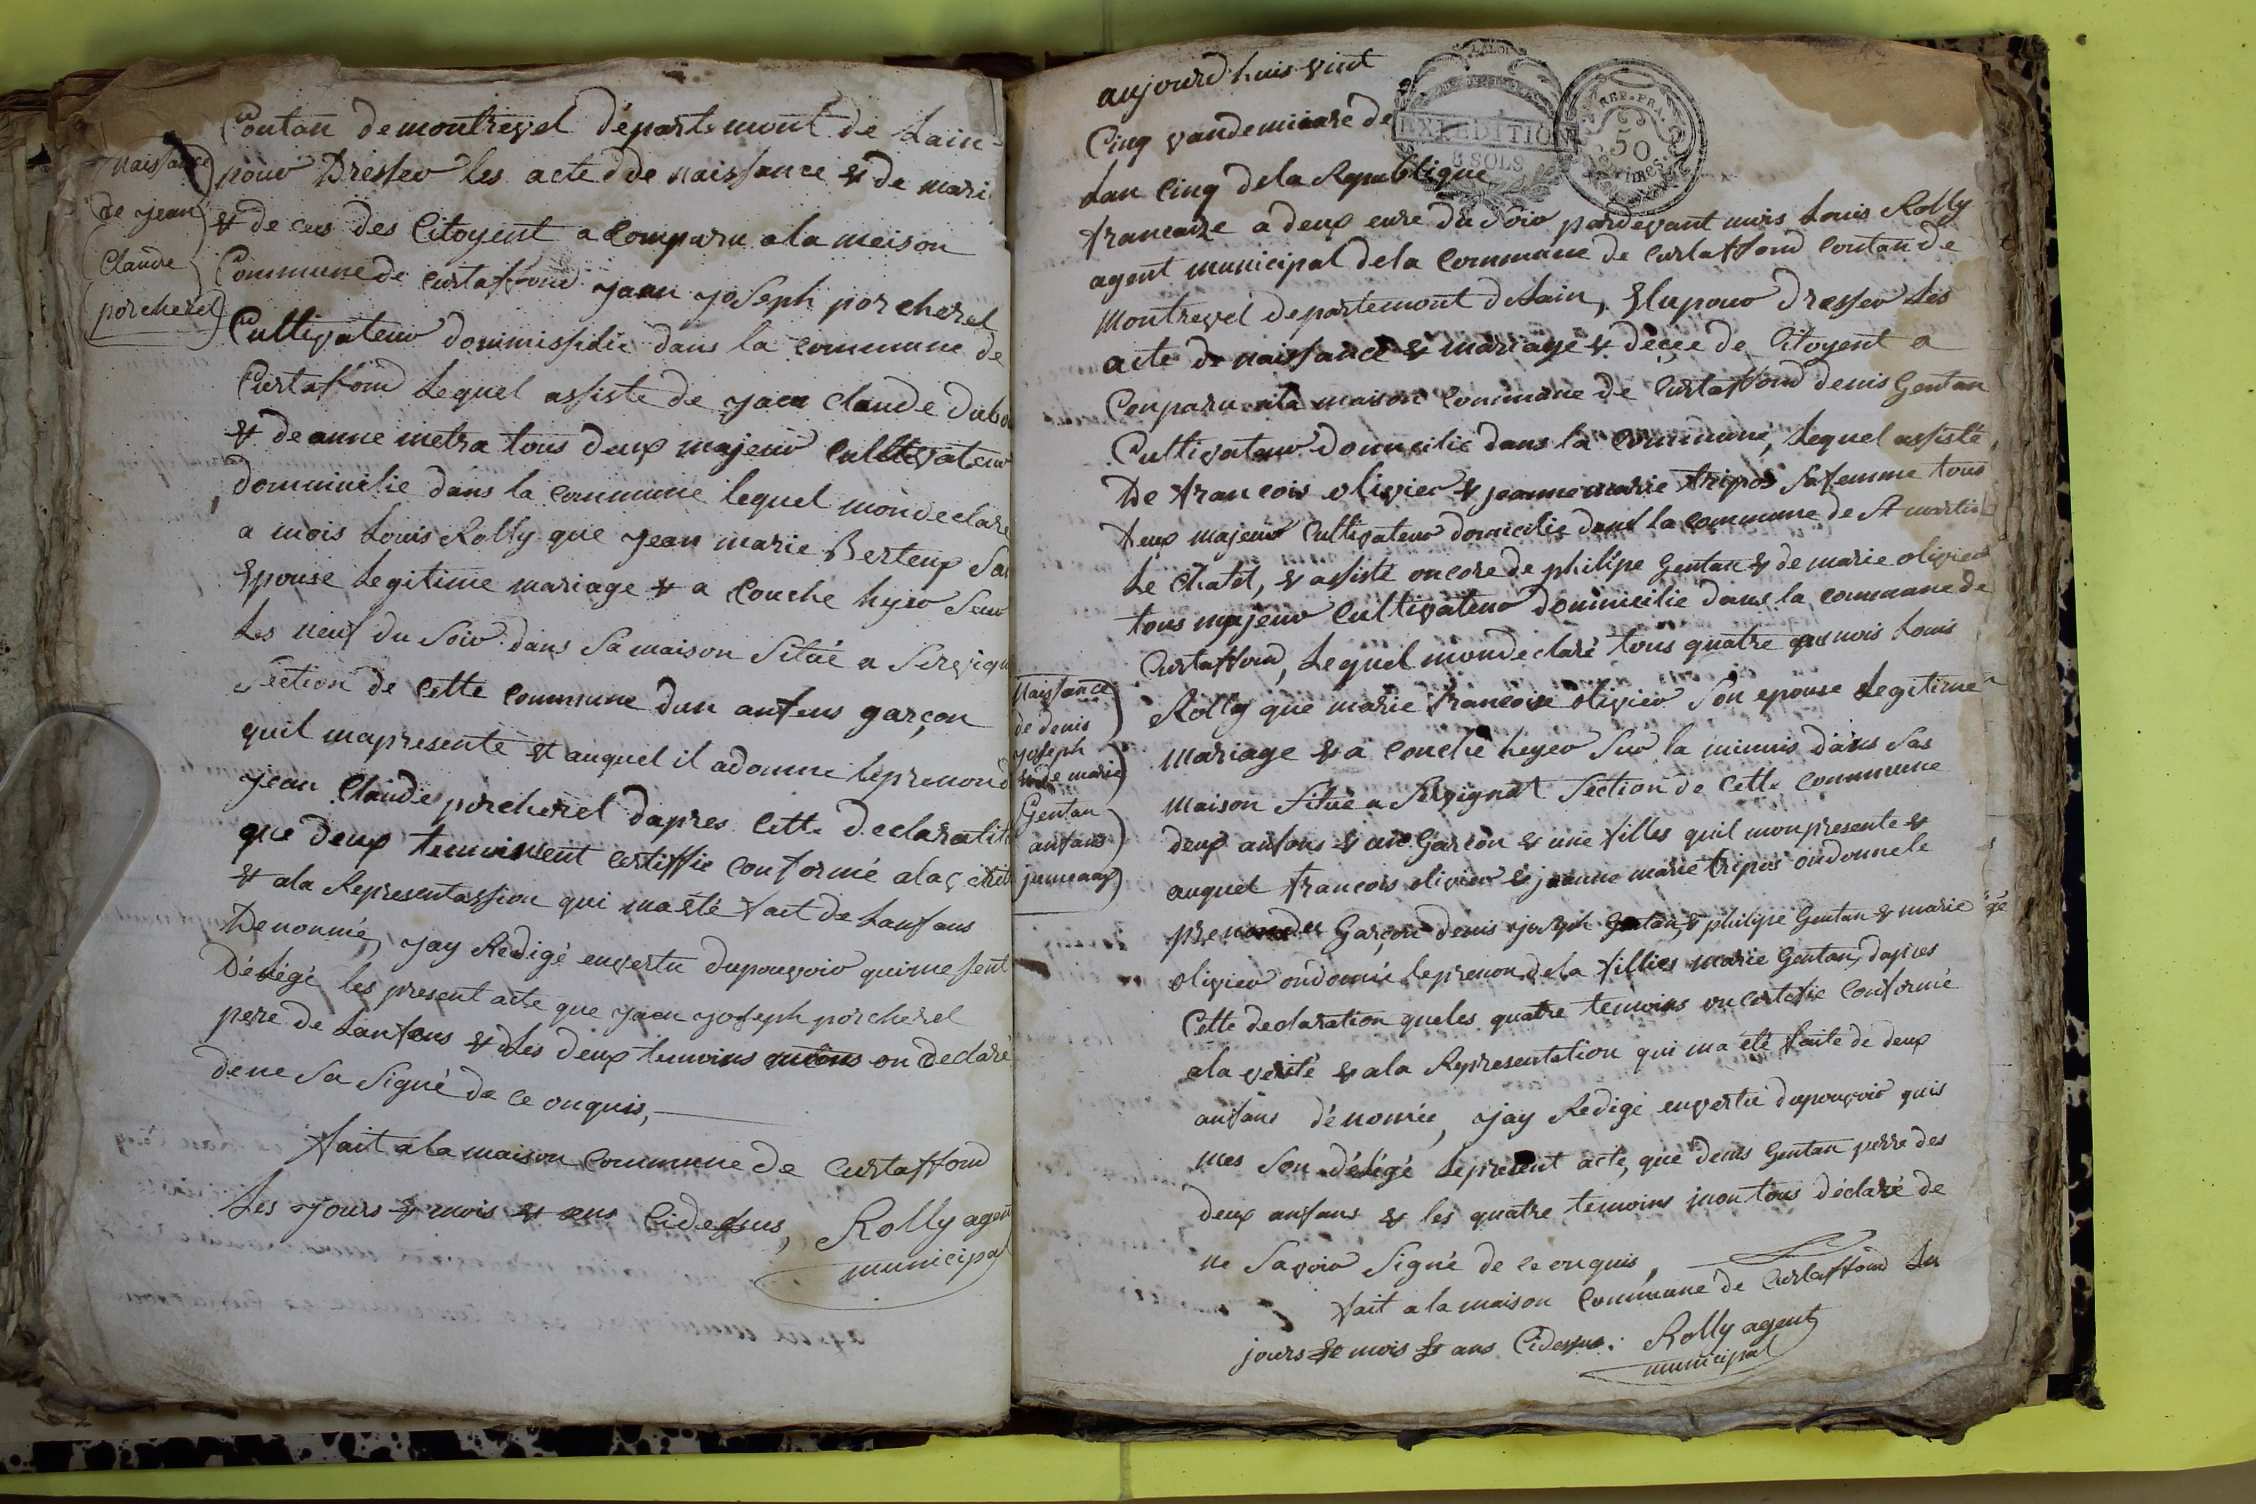 Contan de montrevel départemont de Lain
pour Dresser les acte d de naissance & de mari
& de ces des Citoyent a comparu a la meison
Commune de curtaffond jean joseph porcherel
Cultivateur dommissilié dans la commune de
Curtaffond Lequel assiste de jean claude dubo
& de anne metra tous deux majeur cultivateur
dommicilie dans la commune lequel mon declare
a mois Louis Rolly que jean marie Berteux Sa
Epouse Legitime mariage & a couche hyer Seur
Les neuf du Soir dans Sa maison Situé a
Section de cette commune dun anfens garçon
quil ma presenté & auquel il adonne le prenond
jean Claude porcherel dapres cette declaratio
que deux temoin certiffie conformé ala
& ala Representassion qui ma été fait de Lanfans
Denonmé, jay Redigé envertu dupouvoir quime sent
Délégé les present acte que jean joseph porcherel
pere de Lanfans & Les deux temoins on declaré
dene Sa Signé de ce onquis,
fait a la maison commune de curtaffond
Les jours & mois & ans Cidessus, Rolly agent
municipal
Naissance
de jean
Claude
porcherel
aujourd huis vint
Cinq vandemiaire de
Lan Cinq dela Republique
EXPEDITION
8 SOLS
REP. FRA.
50
francaize a deux eure du Soir pardevant mois Louis Rolly
agent municipal dela commune de curtaffond contan de
Montrevel departemont de Lain, Elupour dresser Les
acte de naissance & mariage & décée de Citoyent a
Conparu ala maison commune de Curtaffond denis Gentan
Cultivateur domicilie dans la commune, Lequel assisté
De francois olivier & jeanne marie tripoz Safemme tous
deux majeur Cultivateur domicilie dans la commune de St martin
Le Chatel, & assisté oncore de philipe Gentan & de marie olivier
tous majeur cultivateur dominicilie dans la commune de
Curtaffond, Lequel mondeclaré tous quatre mois Louis
Rolly que marie francoise olivier Son epouse Legitime
mariage & a couche heyer Sur la minuis dans Sas
maison Situé a Servignat Section de Cette commune
deux anfans & un Garcon & une filles quil monpresente &
auquel francois olivier & jeanne marie tripos ondonnele
prenom des Garçon denis joseph Gentan, & philipe Gentan & marie
olivier ondonné leprenon dela fillies marie Gentan, dapres
Cette declaration queles quatre temoins on certifie conformé
ala verité & ala Representation qui ma été faite de deux
anfans dénomée, jay Redigé envertu dupouvoir quis
mes Son délégé Lepresent acte, que denis Gentan perre des
deux anfans & les quatre temoins mon tous déclaré de
ne Savoir Signé de ce onquis,
fait a la maison Commune de Curtaffond Les
jours & mois & ans Cidessus. Rolly agent
municipal
Naissance
de denis
joseph
de marie
Gentan
anfans
jumeaux